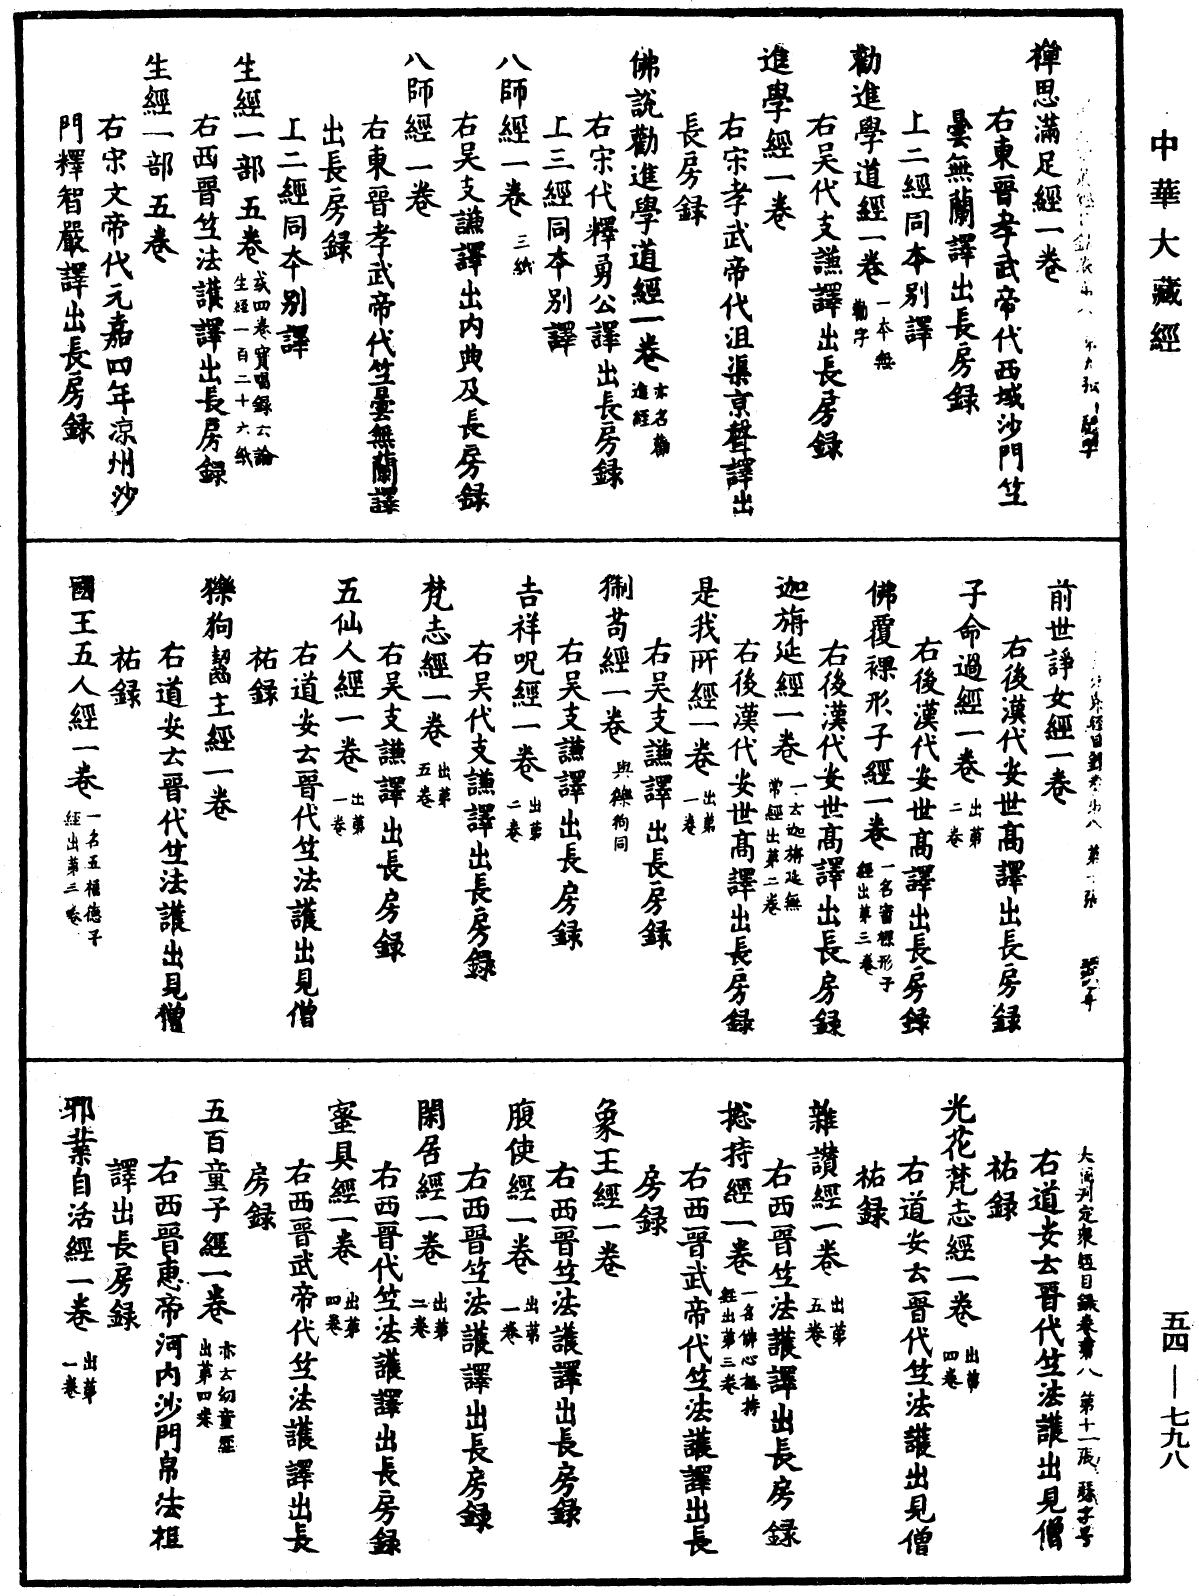 中華大藏經
禪思滿足經一卷
右東晉孝武帝代西域沙門竺
曇無蘭譯出長房録
上二經同本別譯
勸進學道經一卷 一本無勸字
右吴代支謙譯出長房録
進學經一卷
右宋孝武帝代沮渠京聲譯出
長房録
佛説勸進學道經一卷 亦名勸進經
右宋代釋勇公譯出長房録
上三經同本別譯
八師經一卷 三紙
右吴支謙譯出内典及長房録
八師經一卷
右東晉孝武帝代竺曇無蘭譯
出長房録
上二經同本別譯
生經一部五卷 或四卷寶唱録云論生經一百二十六紙
右西晉竺法護譯出長房録
生經一部五卷
右宋文帝代元嘉四年凉州沙
門釋智嚴譯出長房録
前世諍女經一卷
右後漢代安世高譯出長房録
子命過經一卷 出第二卷
右後漢代安世高譯出長房録
佛覆裸形子經一卷 一名蜜裸形子經出第三卷
右後漢代安世高譯出長房録
迦旃延經一卷 一云迦旃延無常經出第二卷
右後漢代安世高譯出長房録
是我所經一卷 出第一卷
右吴支謙譯出長房録
猘苟經一卷 與㺝狗同
右吴支謙譯出長房録
吉祥呪經一卷 出第二卷
右吴代支謙譯出長房録
梵志經一卷 出第五卷
右吴支謙譯出長房録
五仙人經一卷 出第一卷
右道安云晉代竺法護出見僧
祐録
㺝狗齧主經一卷
右道安云晉代竺法護出見僧
祐録
國王五人經一卷 一名五福德子經出第三卷
大周刊定衆經目録卷第八 第十一張
右道安云晉代竺法護出見僧
祐録
光花梵志經一卷 出第四卷
右道安云晉代竺法護出見僧
祐録
雜讚經一卷 出第五卷
右西晉竺法護譯出長房録
揔持經一卷 一名佛心揔持經出第三卷
右西晉武帝代竺法護譯出長
房録
象王經一卷
右西晉竺法護譯出長房録
腹使經一卷 出第一卷
右西晉竺法護譯出長房録
閑居經一卷 出第二卷
右西晉代竺法護譯出長房録
蜜具經一卷 出第四卷
右西晉武帝代竺法護譯出長
房録
五百童子經一卷 亦云幼童經出第四卷
右西晉惠帝河内沙門帛法祖
譯出長房録
邪業自活經一卷 出第一卷
五四—七九八